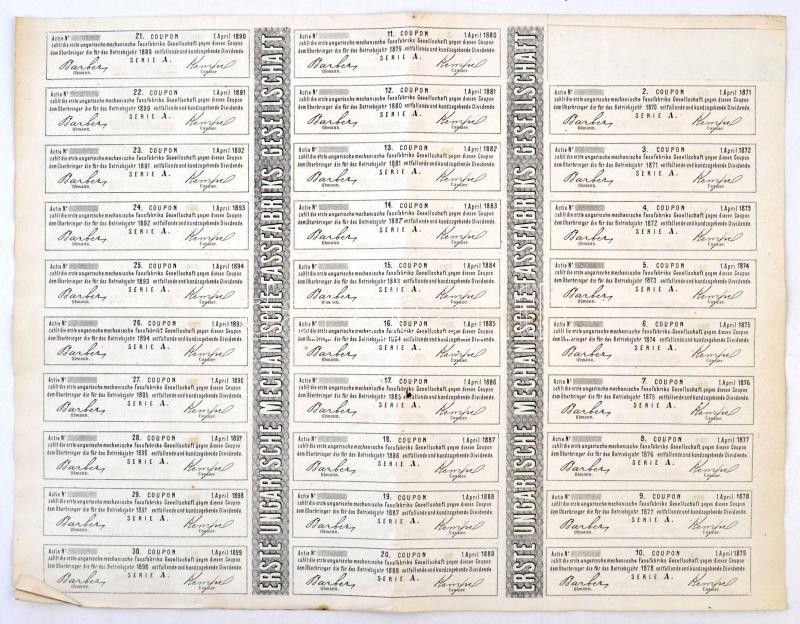 Actie Nº 21. COUPON 1.April 1890
zahlt die erste ungarische mechanische Fassfabriks Gesellschaft gegen diesen Coupon
dem Überbringer die für das Betriebsjahr 1889 entfallende und kundzugebende Dividende.
SERIE A.
Barber Kempel
Obmann. Cassier.
Actie Nº 22. COUPON 1.April 1891
zahlt die erste ungarische mechanische Fassfabriks Gesellschaft gegen diesen Coupon
dem Überbringer die für das Betriebsjahr 1890 entfallende und kundzugebende Dividende.
SERIE A.
Barber Kempel
Obmann. Cassier.
Actie Nº 23. COUPON 1.April 1892
zahlt die erste ungarische mechanische Fassfabriks Gesellschaft gegen diesen Coupon
dem Überbringer die für das Betriebsjahr 1891 entfallende und kundzugebende Dividende.
SERIE A.
Barber Kempel
Obmann. Cassier.
Actie Nº 24. COUPON 1.April 1893
zahlt die erste ungarische mechanische Fassfabriks Gesellschaft gegen diesen Coupon
dem Überbringer die für das Betriebsjahr 1892 entfallende und kundzugebende Dividende.
SERIE A.
Barber Kempel
Obmann. Cassier.
Actie Nº 25. COUPON 1.April 1894
zahlt die erste ungarische mechanische Fassfabriks Gesellschaft gegen diesen Coupon
dem Überbringer die für das Betriebsjahr 1893 entfallende und kundzugebende Dividende.
SERIE A.
Barber Kempel
Obmann. Cassier.
Actie Nº 26. COUPON 1.April 1895
zahlt die erste ungarische mechanische Fassfabriks Gesellschaft gegen diesen Coupon
dem Überbringer die für das Betriebsjahr 1894 entfallende und kundzugebende Dividende.
SERIE A.
Barber Kempel
Obmann. Cassier.
Actie Nº 27. COUPON 1.April 1896
zahlt die erste ungarische mechanische Fassfabriks Gesellschaft gegen diesen Coupon
dem Überbringer die für das Betriebsjahr 1895 entfallende und kundzugebende Dividende.
SERIE A.
Barber Kempel
Obmann. Cassier.
Actie Nº 28. COUPON 1.April 1897
zahlt die erste ungarische mechanische Fassfabriks Gesellschaft gegen diesen Coupon
dem Überbringer die für das Betriebsjahr 1896 entfallende und kundzugebende Dividende.
SERIE A.
Barber Kempel
Obmann. Cassier.
Actie Nº 29. COUPON 1.April 1898
zahlt die erste ungarische mechanische Fassfabriks Gesellschaft gegen diesen Coupon
dem Überbringer die für das Betriebsjahr 1897 entfallende und kundzugebende Dividende.
SERIE A.
Barber Kempel
Obmann. Cassier.
Actie Nº 30. COUPON 1.April 1899
zahlt die erste ungarische mechanische Fassfabriks Gesellschaft gegen diesen Coupon
dem Überbringer die für das Betriebsjahr 1898 entfallende und kundzugebende Dividende.
SERIE A.
Barber Kempel
Obmann. Cassier.
ERSTE UNGARISCHE MECHANISCHE FASSFABRIKS GESELLSCHAFT
Actie Nº 11. COUPON 1.April 1880
zahlt die erste ungarische mechanische Fassfabriks Gesellschaft gegen diesen Coupon
dem Überbringer die für das Betriebsjahr 1879 entfallende und kundzugebende Dividende.
SERIE A.
Barber Kempel
Obmann. Cassier.
Actie Nº 12. COUPON 1.April 1881
zahlt die erste ungarische mechanische Fassfabriks Gesellschaft gegen diesen Coupon
dem Überbringer die für das Betriebsjahr 1880 entfallende und kundzugebende Dividende.
SERIE A.
Barber Kempel
Obmann. Cassier.
Actie Nº 13. COUPON 1.April 1882
zahlt die erste ungarische mechanische Fassfabriks Gesellschaft gegen diesen Coupon
dem Überbringer die für das Betriebsjahr 1881 entfallende und kundzugebende Dividende.
SERIE A.
Barber Kempel
Obmann. Cassier.
Actie Nº 14. COUPON 1.April 1883
zahlt die erste ungarische mechanische Fassfabriks Gesellschaft gegen diesen Coupon
dem Überbringer die für das Betriebsjahr 1882 entfallende und kundzugebende Dividende.
SERIE A.
Barber Kempel
Obmann. Cassier.
Actie Nº 15. COUPON 1.April 1884
zahlt die erste ungarische mechanische Fassfabriks Gesellschaft gegen diesen Coupon
dem Überbringer die für das Betriebsjahr 1883 entfallende und kundzugebende Dividende.
SERIE A.
Barber Kempel
Obmann. Cassier.
Actie Nº 16. COUPON 1.April 1885
zahlt die erste ungarische mechanische Fassfabriks Gesellschaft gegen diesen Coupon
dem Überbringer die für das Betriebsjahr 1884 entfallende und kundzugebende Dividende.
SERIE A.
Barber Kempel
Obmann. Cassier.
Actie Nº 17. COUPON 1.April 1886
zahlt die erste ungarische mechanische Fassfabriks Gesellschaft gegen diesen Coupon
dem Überbringer die für das Betriebsjahr 1885 entfallende und kundzugebende Dividende.
SERIE A.
Barber Kempel
Obmann. Cassier.
Actie Nº 18. COUPON 1.April 1887
zahlt die erste ungarische mechanische Fassfabriks Gesellschaft gegen diesen Coupon
dem Überbringer die für das Betriebsjahr 1886 entfallende und kundzugebende Dividende.
SERIE A.
Barber Kempel
Obmann. Cassier.
Actie Nº 19. COUPON 1.April 1888
zahlt die erste ungarische mechanische Fassfabriks Gesellschaft gegen diesen Coupon
dem Überbringer die für das Betriebsjahr 1887 entfallende und kundzugebende Dividende.
SERIE A.
Barber Kempel
Obmann. Cassier.
Actie Nº 20. COUPON 1.April 1889
zahlt die erste ungarische mechanische Fassfabriks Gesellschaft gegen diesen Coupon
dem Überbringer die für das Betriebsjahr 1888 entfallende und kundzugebende Dividende.
SERIE A.
Barber Kempel
Obmann. Cassier.
ERSTE UNGARISCHE MECHANISCHE FASSFABRIKS GESELLSCHAFT
Actie Nº 2. COUPON 1.April 1871
zahlt die erste ungarische mechanische Fassfabriks Gesellschaft gegen diesen Coupon
dem Überbringer die für das Betriebsjahr 1870 entfallende und kundzugebende Dividende.
SERIE A.
Barber Kempel
Obmann. Cassier.
Actie Nº 3. COUPON 1.April 1872
zahlt die erste ungarische mechanische Fassfabriks Gesellschaft gegen diesen Coupon
dem Überbringer die für das Betriebsjahr 1871 entfallende und kundzugebende Dividende.
SERIE A.
Barber Kempel
Obmann. Cassier.
Actie Nº 4. COUPON 1.April 1873
zahlt die erste ungarische mechanische Fassfabriks Gesellschaft gegen diesen Coupon
dem Überbringer die für das Betriebsjahr 1872 entfallende und kundzugebende Dividende.
SERIE A.
Barber Kempel
Obmann. Cassier.
Actie Nº 5. COUPON 1.April 1874
zahlt die erste ungarische mechanische Fassfabriks Gesellschaft gegen diesen Coupon
dem Überbringer die für das Betriebsjahr 1873 entfallende und kundzugebende Dividende.
SERIE A.
Barber Kempel
Obmann. Cassier.
Actie Nº 6. COUPON 1.April 1875
zahlt die erste ungarische mechanische Fassfabriks Gesellschaft gegen diesen Coupon
dem Überbringer die für das Betriebsjahr 1874 entfallende und kundzugebende Dividende.
SERIE A.
Barber Kempel
Obmann. Cassier.
Actie Nº 7. COUPON 1.April 1876
zahlt die erste ungarische mechanische Fassfabriks Gesellschaft gegen diesen Coupon
dem Überbringer die für das Betriebsjahr 1875 entfallende und kundzugebende Dividende.
SERIE A.
Barber Kempel
Obmann. Cassier.
Actie Nº 8. COUPON 1.April 1877
zahlt die erste ungarische mechanische Fassfabriks Gesellschaft gegen diesen Coupon
dem Überbringer die für das Betriebsjahr 1876 entfallende und kundzugebende Dividende.
SERIE A.
Barber Kempel
Obmann. Cassier.
Actie Nº 9. COUPON 1.April 1878
zahlt die erste ungarische mechanische Fassfabriks Gesellschaft gegen diesen Coupon
dem Überbringer die für das Betriebsjahr 1877 entfallende und kundzugebende Dividende.
SERIE A.
Barber Kempel
Obmann. Cassier.
Actie Nº 10. COUPON 1.April 1879
zahlt die erste ungarische mechanische Fassfabriks Gesellschaft gegen diesen Coupon
dem Überbringer die für das Betriebsjahr 1878 entfallende und kundzugebende Dividende.
SERIE A.
Barber Kempel
Obmann. Cassier.